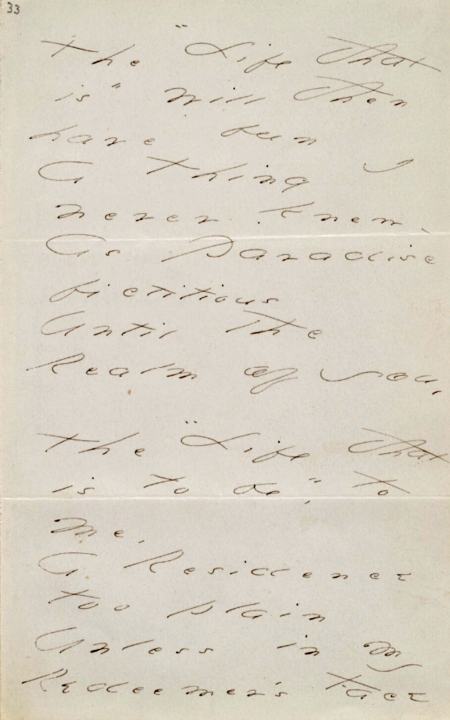 33
The "Life that
is" will then
have been
A Thing I
never knew -
As Paradise
fictitious
Until the
Realm of you,
The "Life that
is to be," to
me,
A Residence
too plain
Unless in my
Redeemer's Face